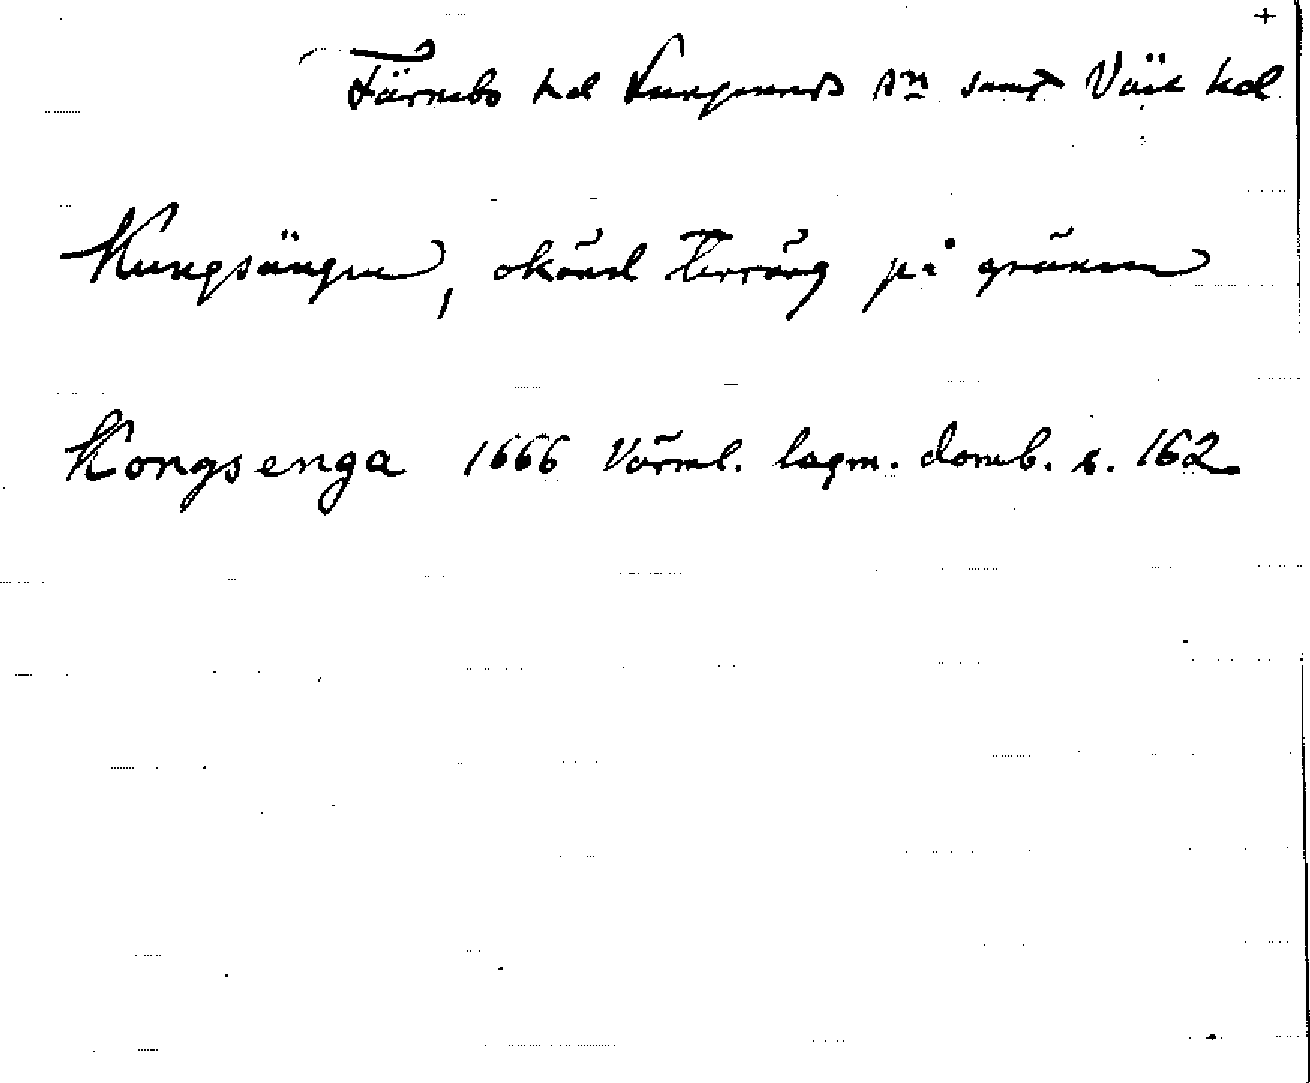 +
Färnebo hd Lungsunds sn samt Väse hd
Kungsängen, okänd terräng på gränsen
Kongsenga 1666 Värml. lagm. domb. s. 162